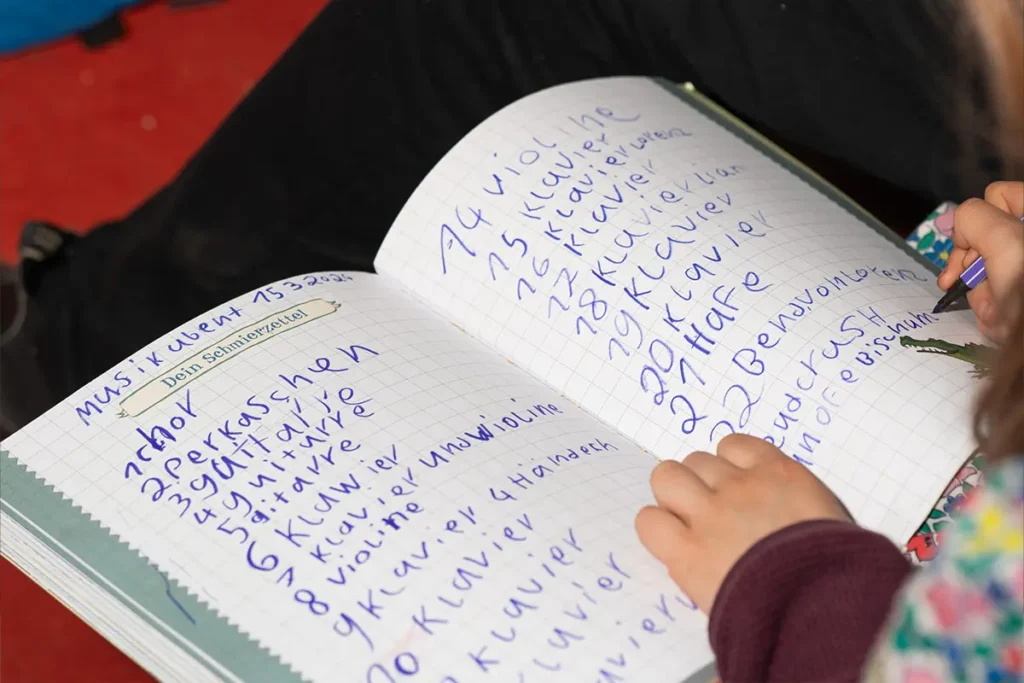 Musikabent 15 3 2024
Dein Schmierzettel
1chor
2Perkaschen
3gaitarje
4guitarre
5gitarre
6 Klawier
7 Klavier undwioline
8 violine
9 Klavier 4 Händech
10 Klavier
Klavier
Klavier
avier
14 violine
15 Klavier
16 Klavier Lorenz
17 Klavier
18 Klavier lian
19 Klavier
20 Klavier
21 Hafe
22 Bend vohLorenz